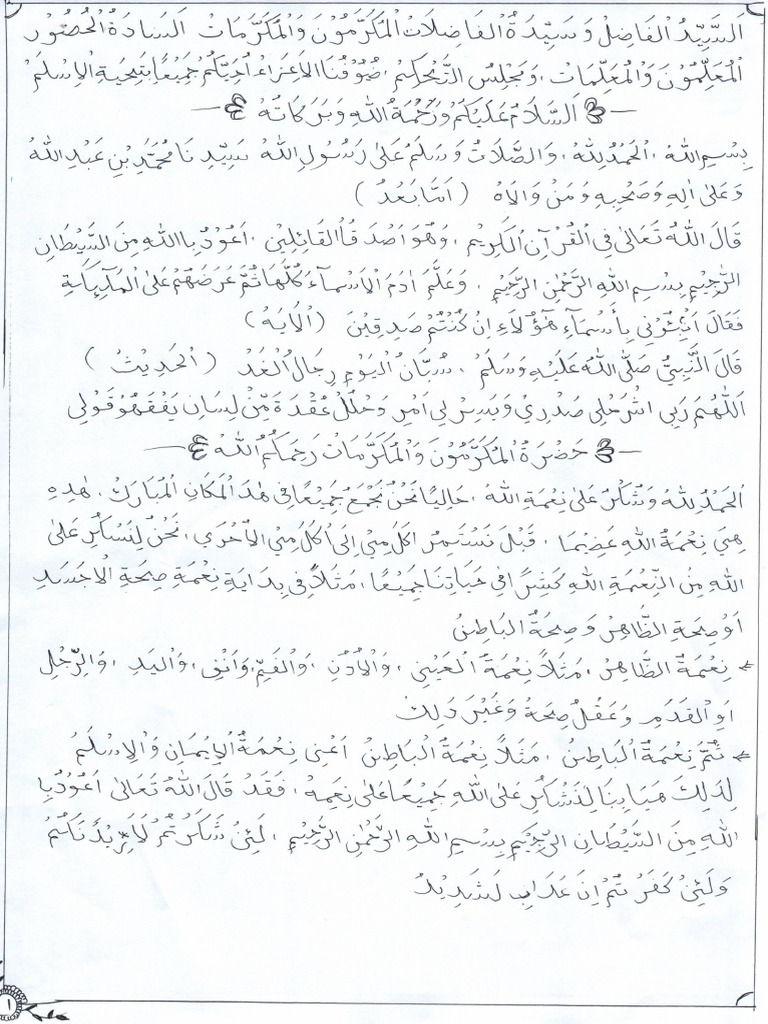 اَلسَّيِّدُ الْفَاضِلْ وَسَيِّدَةُ الْفَاضِلَاتْ الْمُكَرَّمُوْنَ وَالْمُكَرَّمَاتْ السَّادَةُ الْحُضُوْر
الْمُعَلِّمُوْنَ وَالْمُعَلِّمَاتْ، وَمَجْلِسُ التَّحْكِيْمْ، ضُيُوْفُنَا الْاَعِزَاءْ اُحَيِّكُمْ جَمِيْعًا بِتَحِيَةِ الْاِسْلَمْ
اَلسَّلَامُ عَلَيْكُمْ وَرَحْمَةُ اللهِ وَبَرَكَاتُهُ
بِسْمِ اللهْ، الْحَمْدُ لِلهْ، وَالصَّلَاتُ وَسَلَمُ عَلَى رَسُوْلِ اللهْ سَيِّدِ نَا مُحَمَّدِ بْنِ عَبْدِ اللهْ
وَعَلَى اٰلِهِ وَصَحْبِهِ وَمَنْ وَالَاهْ (اَمَّا بَعْدُ)
قَالَ اللهُ تَعَالَى فِى الْقُرْآنِ الْكَرِيْمْ، وَهُوَ اَصْدَقُ الْقَائِلِيْنْ، اَعُوْذُ بِا اللهِ مِنَ الشَّيْطَانِ
الرَّجِيْمِ بِسْمِ اللهِ الرَّحْمٰنِ الرَّحِيْمِ، وَعَلَّمَ اٰدَمَ الْاَسْمَآءَ كُلَّهَا ثُمَّ عَرَضَهُمْ عَلَى الْمَلٰٓئِكَةِ
فَقَالَ اَنْبِئُوْنِى بِأَسْمَآءِ هٰٓؤُلَآءِ اِنْ كُنْتُمْ صٰدِقِيْنَ (اْلاَيَهْ)
قَالَ النَّبِيُّ صَلَّى اللهُ عَلَيْهِ وَسَلَمْ، شُبَّانُ الْيَوْمِ رِجَالُ الْغَدْ (الْحَدِيْثْ)
اَللّٰهُمَّ رَبِى اشْرَحْلِى صَدْرِيْ وَيَسِرْ لِى اَمْرِ وَحْلُلْ عُقْدَةً مِّنْ لِسَانِ يَفْقَهُوْ قَوْلِى
حَضْرَةُ الْمُكَرَّمُوْنَ وَالْمُكَرَّمَاتْ رَحِمَكُمُ اللهْ
الْحَمْدُ لِلهْ وَشُكْرُ عَلَى نِعْمَةِ اللهْ، حَالِيًا نَحْنُ نَجْمَعُ جَمِيْعًا فِى هٰذَ الْمَكَانِ الْمُبَارَكْ، هٰذِهِ
هِيَ نِعْمَةُ اللهِ عَضِيْمَا، قَبْلَ نَسْتَمِرْ اَكَلِمِيْ اِلَى اُكَلِمِيْ الْأُخْرَي، نَحْنُ لِنَشْكُرْ عَلَى
اللهِ مِنَ النِّعْمَةِ اللهِ كَشِرًا فِى حَيَاتِنَا جَمِيْعًا، مَثَلًا فِى بِدَايَةِ نِعْمَةِ صِحَةِ الْاجَسَدِ
اَوْ صِحَةِ الظَّاهِرْ وَصِحَةُ الْبَاطِنْ
نِعْمَةُ الظَّاهِرْ، مَثَلًا نِعْمَةُ الْعَيْنِى، وَالْأُذُنِ، وَالْفَمِّ، وَاَنْفِ، وَالْيَدِ، وَالرِّجْلِ
اَوِ الْقَدَمِ وَعَقْلُ صِحَةُ وَغَيْرَ ذٰلِكْ
ثُمَّ نِعْمَةُ الْبَاطِنْ، مَثَلًا نِعْمَةُ الْبَاطِنْ اَعْنِى نِعْمَةُ الْاِيْمَانِ وَالْاِسْلَمْ
لِذٰلِكَ هَيَا بِنَا لِذَشْكُرِ عَلَى اللهِ جَمِيْعًا عَلَى نِعَمِهْ، فَقَدْ قَالَ اللهُ تَعَالَى اَعُوْذُ بِا
اللهِ مِنَ الشَّيْطَانِ الرَّجِيْمِ بِسْمِ اللهِ الرَّحْمٰنِ الرَّحِيْمِ، لَئِنْ شَكَرْ تُمْ لَاَزِيْدَنَّكُمْ
وَلَئِنْ كَفَرْ تُمْ اِنَّ عَذَابِ لَشَدِيْدْ
١